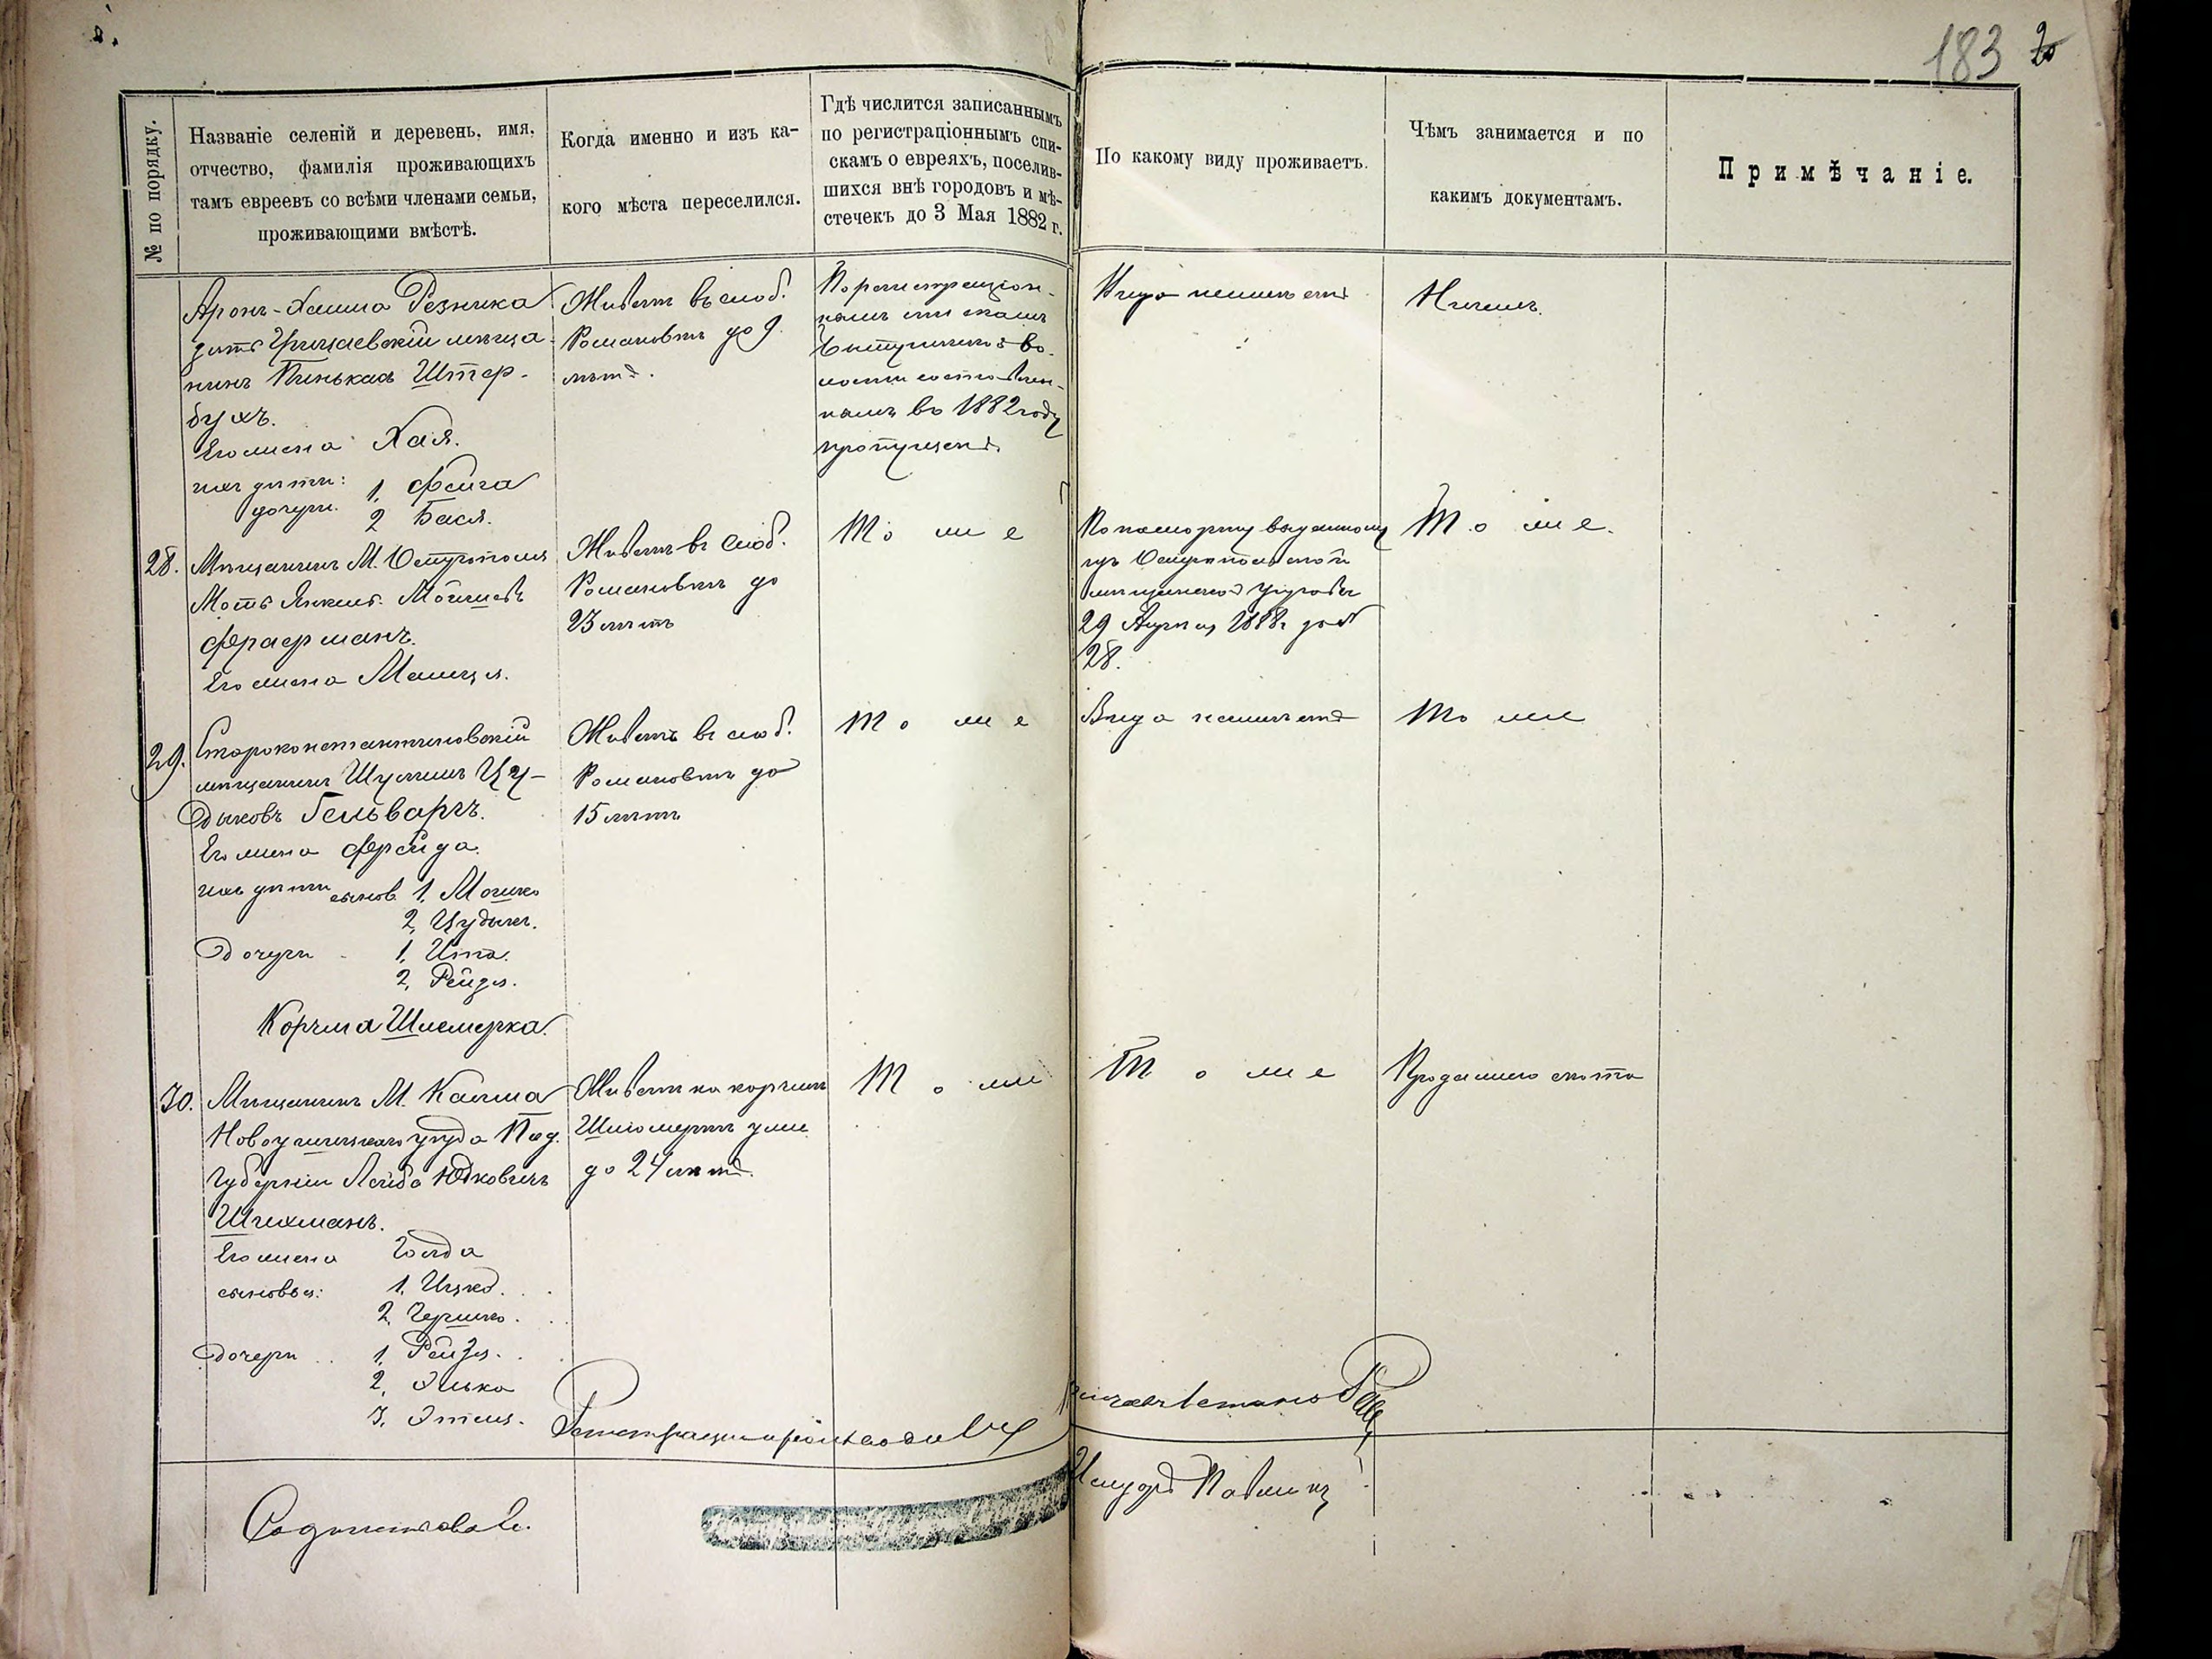 183 20
№ по порядку.
Названіе селеній и деревень, имя,
отчество, фамилія проживающихъ
тамъ евреевъ со всѣми членами семьи,
проживающими вмѣстѣ.
Когда именно и изъ ка-
кого мѣста переселился.
Гдѣ числится записаннымъ
по регистраціоннымъ спи-
скамъ о евреяхъ, поселив-
шихся внѣ городовъ и мѣ-
стечекъ до 3 Мая 1882 г.
По какому виду проживаетъ.
Чѣмъ занимается и по
какимъ документамъ.
Примѣчаніе.
Аронъ-Хаима Резника
зять Грицаевскій мѣща-
нинъ Пинькасъ Штер-
бухъ.
Его жена Хая.
ихъ дѣти: 1, Фейга
дочери. 2 Бася.
Живетъ въ слоб.
Романовкѣ до 9
лѣтъ.
По регистраціон-
нымъ спискамъ
во-
лости составлен-
нымъ въ 1882 году
пропущенъ.
Вида не имѣетъ
Ничемъ.
28. Мѣщанинъ М. Острополя
Мотя Янкель Мошковъ
Фраерманъ.
Его жена Маиця.
Живетъ въ слоб.
Романовкѣ до
23 лѣтъ
То же
По паспорту выданному
изъ Остропольской
мѣщанской управы
29 1888 г. за №
28.
То же.
29. Староконстантиновскій
мѣщанинъ Шулимъ Цу-
дыковъ Гельваргъ.
Его жена Фрейда.
ихъ дѣти сынов. 1, Мошко
2, Цудыкъ.
Дочери 1, Ита.
2, Рейзя.
Живетъ въ слоб.
Романовкѣ до
15 лѣтъ
То же
Вида не имѣетъ
То же
Корчма Шлемерка.
30. Мѣщанинъ М. Калюса
Новоушицкаго уѣзда Под.
Губерніи Лейба Юдковичъ
Шихманъ.
Его жена Голда
сыновья: 1, Ицко.
2, Гершко.
Дочери 1, Рейзя.
2, Элька
3, Этель.
Живетъ на корчмѣ
Шлемеркѣ уже
до 24 лѣтъ.
То же
То же
Продажею скота
Регистрацію производилъ